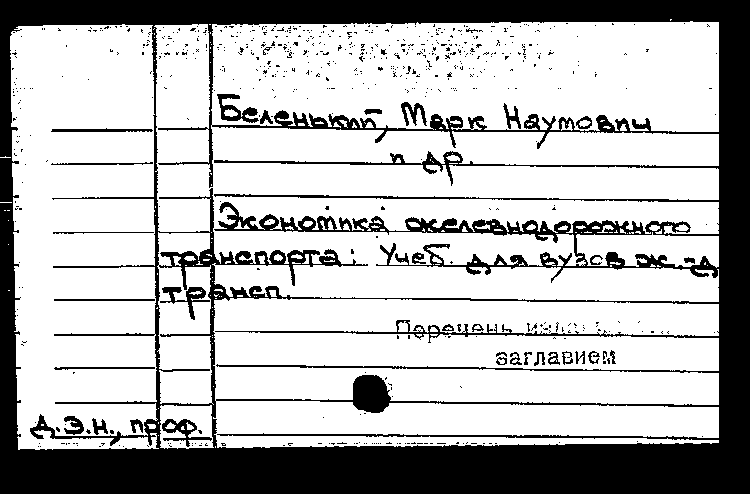 Беленький, Марк Наумович
и др.
Экономика железнодорожного
транспорта: Учеб. для вузов ж.-д
трансп.
Перечень
заглавием
Д.Э.Н., проф.